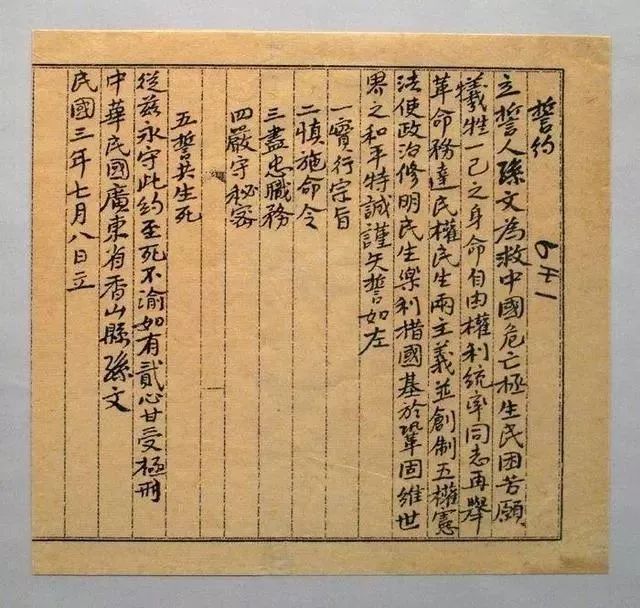 誓約 641
立誓人孫文為救中國危亡極生民困苦願
犧牲一己之身命自由權利統率同志再舉
革命務達民權民生兩主義並創制五權憲
法使政治修明民生樂利措國基於鞏固維世
界之和平特誠謹矢誓如左
一實行宗旨
二慎施命令
三盡忠職務
四嚴守秘密
五誓共生死
從茲永守此約至死不渝如有貳心甘受極刑
中華民國廣東省香山縣孫文
民國三年七月八日立